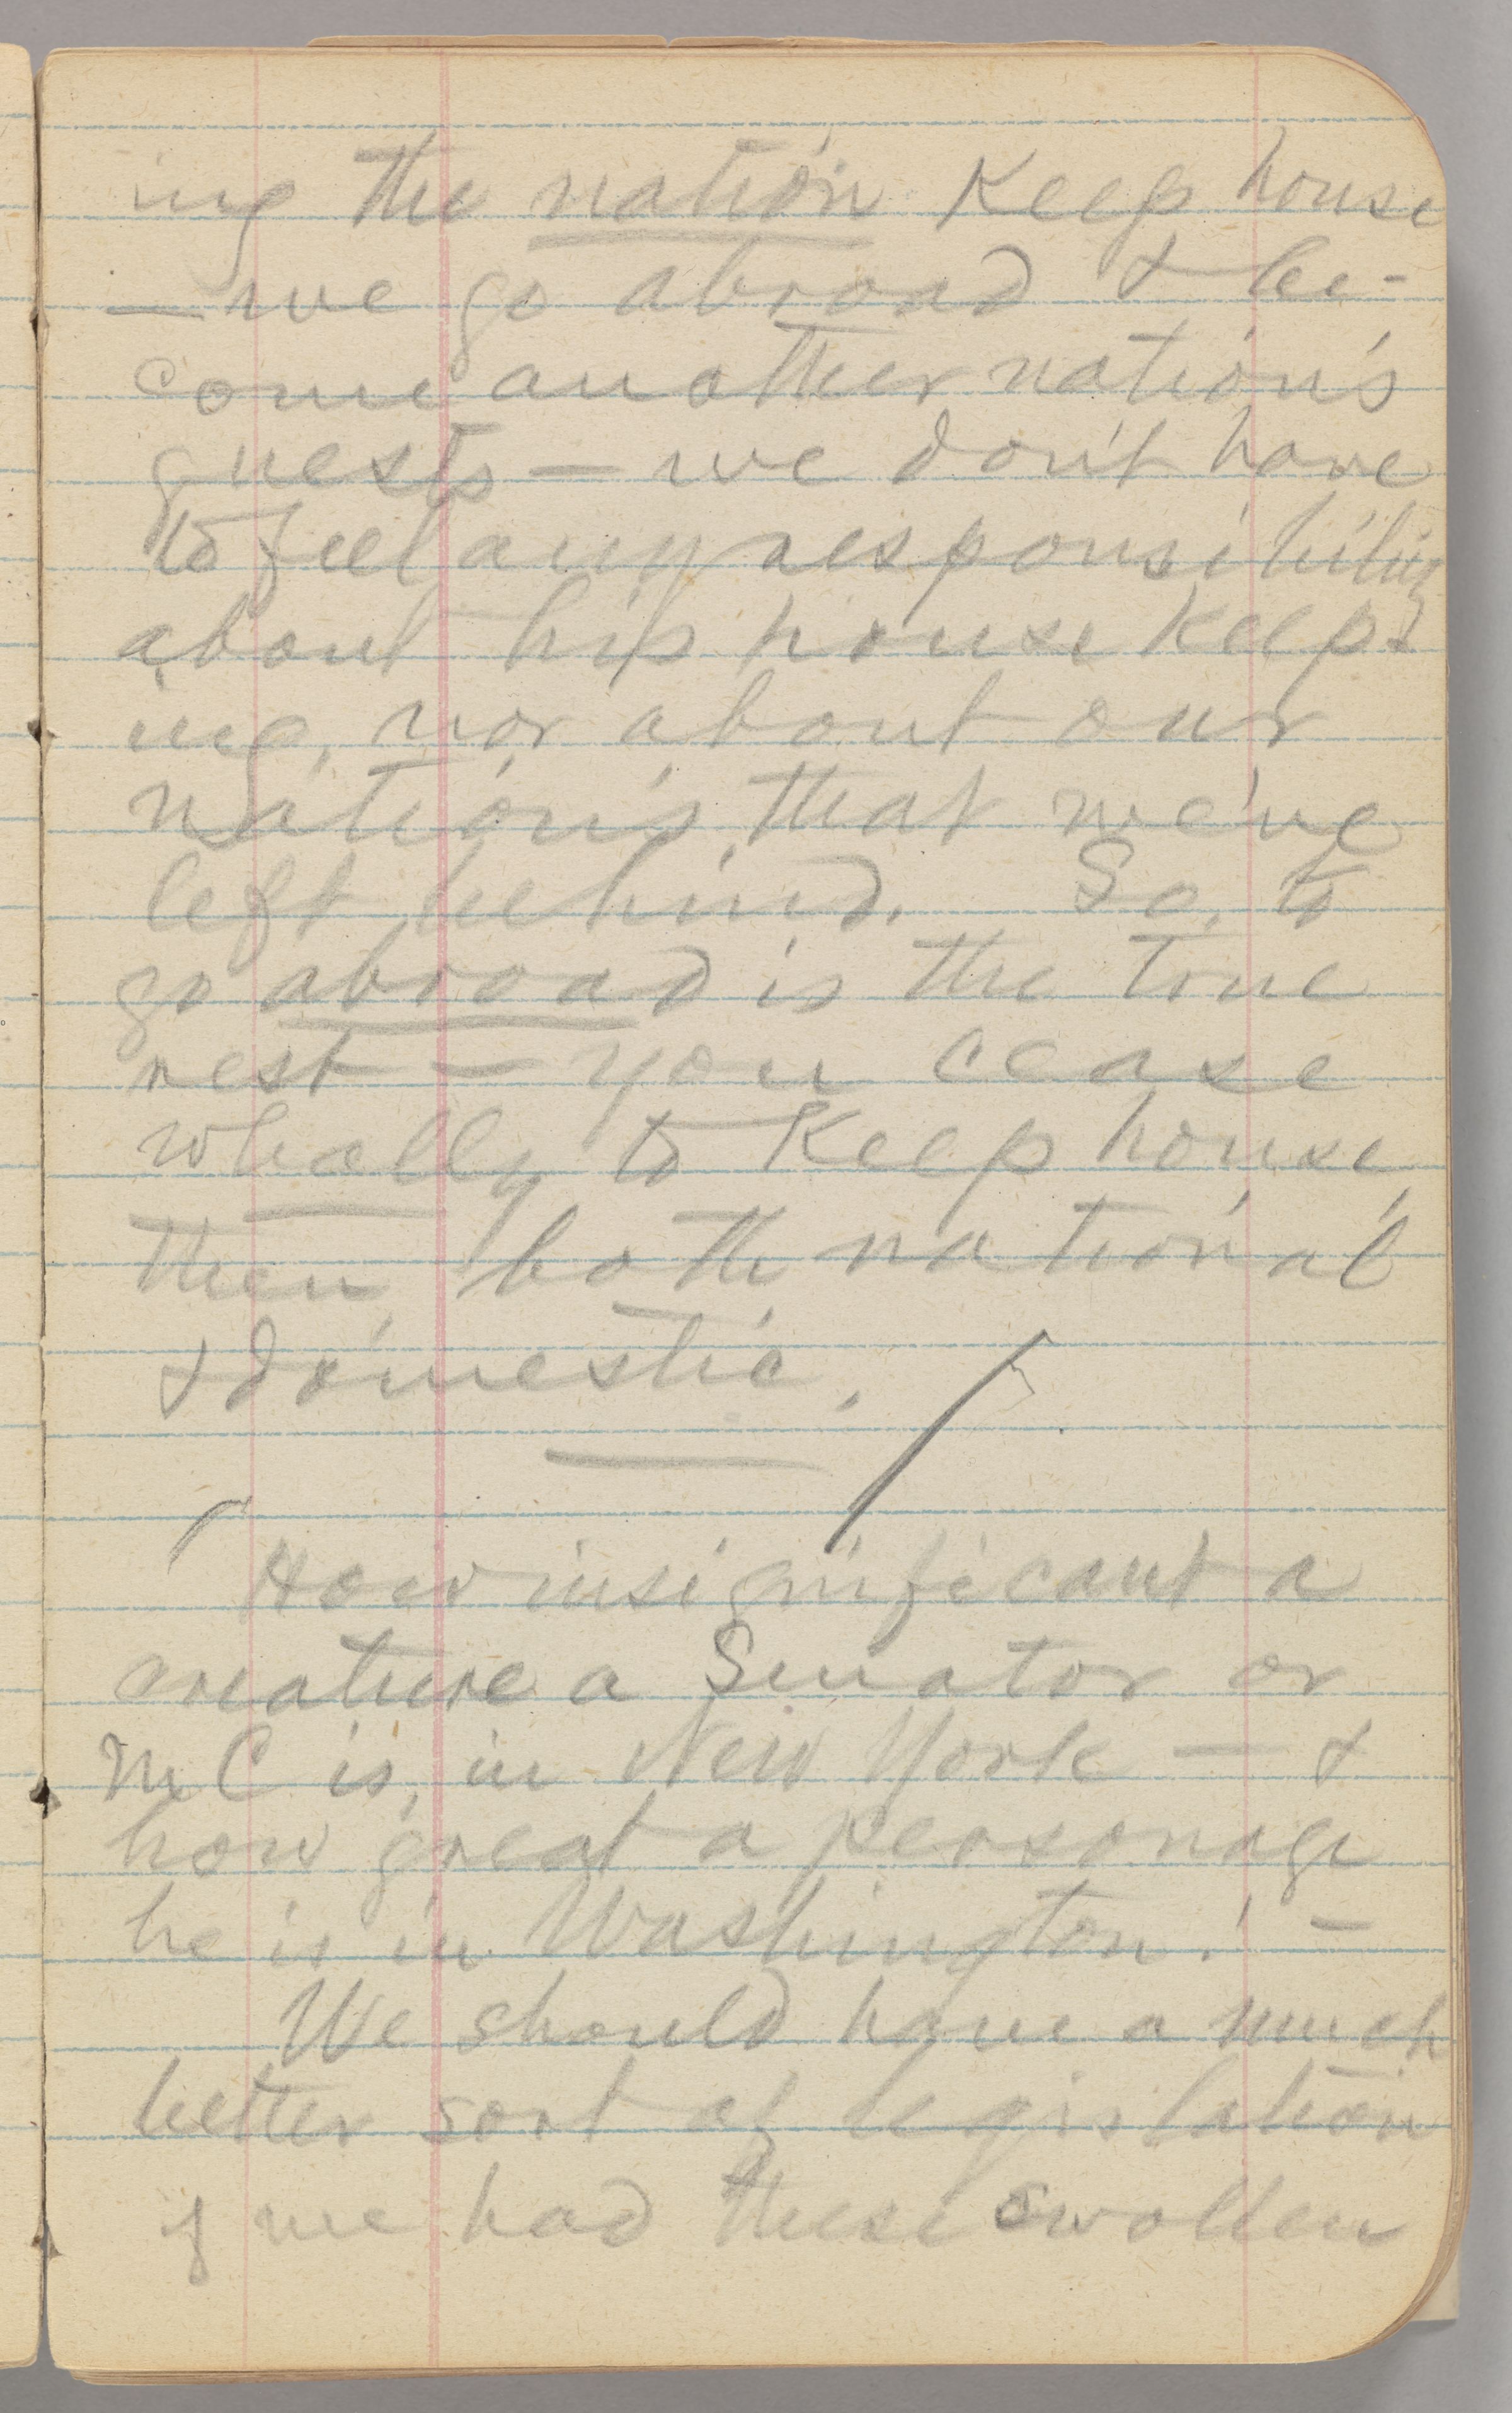 ing the nation keep house
— we go abroad & be-
come another nation's
guests — we don't have
to feel any responsibility
about his housekeep-
ing, nor about our
nation's, that we've
left behind. So, to
go abroad is the true
rest — you cease
wholly to keep house,
then, both national
& domestic.
How insignificant a
creature a Senator or
M C is, in New York — &
how great a personage
he is in Washington! —
We should have a much
better sort of legislation
if we had these swollen